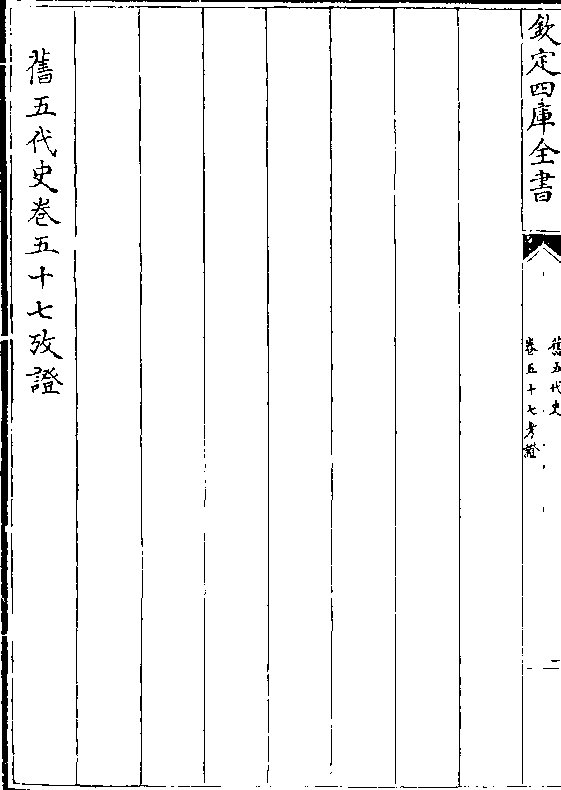 欽定四庫全書
舊五代史
卷五十七考證
二
舊五代史卷五十七攷證